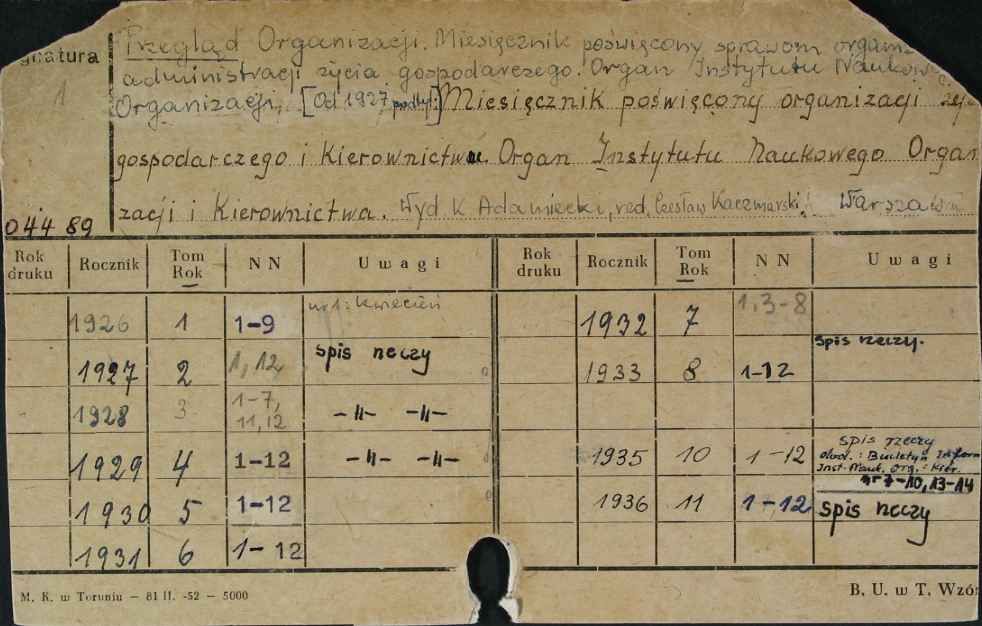 gnatura
1
Przegląd Organizacji. Miesięcznik poświęcony sprawom organiz
administracji życia gospodarczego. Organ Instytutu Naukowe
Organizacji, [Od 1927, podtyt:] Miesięcznik poświęcony organizacji życ
gospodarczego i Kierownictwu. Organ Instytutu Naukowego Organ
zacji i Kierownictwa. Wyd. K. Adamiecki, red. Czesław Kaczmarski. Warszawa
044 89
Rok druku Rocznik Tom Rok N N Uwagi Rok druku Rocznik Tom Rok N N Uwagi
1926 1 1-9 nr 1: kwiecień 1932 7 1,3-8
1927 2 1, 12 spis rzeczy 1933 8 1-12 spis rzeczy.
1928 3 1-7, 11,12 -"- -"-
1929 4 1-12 -"- -"- 1935 10 1-12 spis rzeczy
dod.: Biuletyn Inform
Inst. Nauk. Org. i Kier.
nr 7-10, 13-14
1930 5 1-12 1936 11 1-12 spis rzeczy
1931 6 1-12
M. K. w Toruniu — 81 II. -52 — 5000 B. U. w T. Wzór